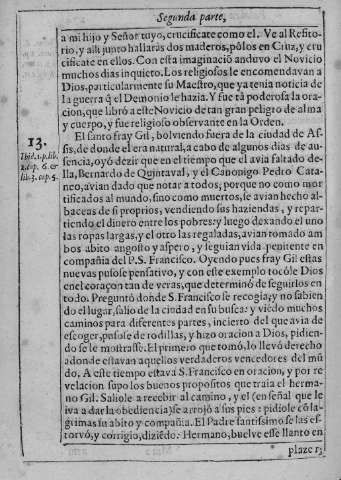 Segunda parte,
a mi hijo y Señor tuyo, crucificate como el. Ve al Refito-
rio, y alli junto hallaràs dos maderos, põlos en Cruz, y cru
cificate en ellos. Con esta imaginaciõ anduvo el Novicio
muchos dias inquieto. Los religiosos le encomendavan a
Dios, particularmente su Maestro, que ya tenia noticia de
la guerra q̃ el Demonio le hazia. Y fue tã poderosa la ora-
cion, que librò a este Novicio de tan gran peligro de alma
y cuerpo, y fue religioso observante en la Orden.
13.
Ibid. 1. p. lib.
1. cap. 6. et
lib. 3. cap. 5.
El santo fray Gil, bolviendo fuera de la ciudad de As-
sis, de donde el era natural, a cabo de algunos dias de au-
sencia, oyò dezir que en el tiempo que el avia faltado de-
lla, Bernardo de Quintaval, y el Canonigo Pedro Cata-
neo, avian dado que notar a todos; porque no como mor
tificados al mundo, sino como muertos, le avian hecho al-
baceas de si proprios, vendiendo sus haziendas, y repar-
tiendo el dinero entre los pobres: y luego dexando el uno
las ropas largas, y el otro las regaladas, avian tomado am
bos abito angosto y aspero, y seguian vida penitente en
compañia del P. S. Francisco. Oyendo pues fray Gil estas
nuevas pusose pensativo, y con este exemplo tocóle Dios
en el coraçon tan de veras, que determinó de seguirlos en
todo. Preguntò donde S. Francisco se recogia, y no sabien
do el lugar, salio de la ciudad en su busca: y viẽdo muchos
caminos para diferentes partes, incierto del que avia de
escoger, pusose de rodillas, y hizo oracion a Dios, pidien-
do se le mostrasse. El primero que tomó, lo llevò derecho
adonde estavan aquellos verdaderos vencedores del mũ
do. A este tiempo estava S. Francisco en oracion, y por re
velacion supo los buenos propositos que traia el herma-
no Gil. Saliole a recebir al camino, y el (en señal que le
iva a dar la obediencia) se arrojò a sus pies: pidiole cõ la-
grimas su abito y compañia. El Padre santissimo se las es-
torvò, y corrigio, diziẽdo. Hermano, buelve esse llanto en
plazer